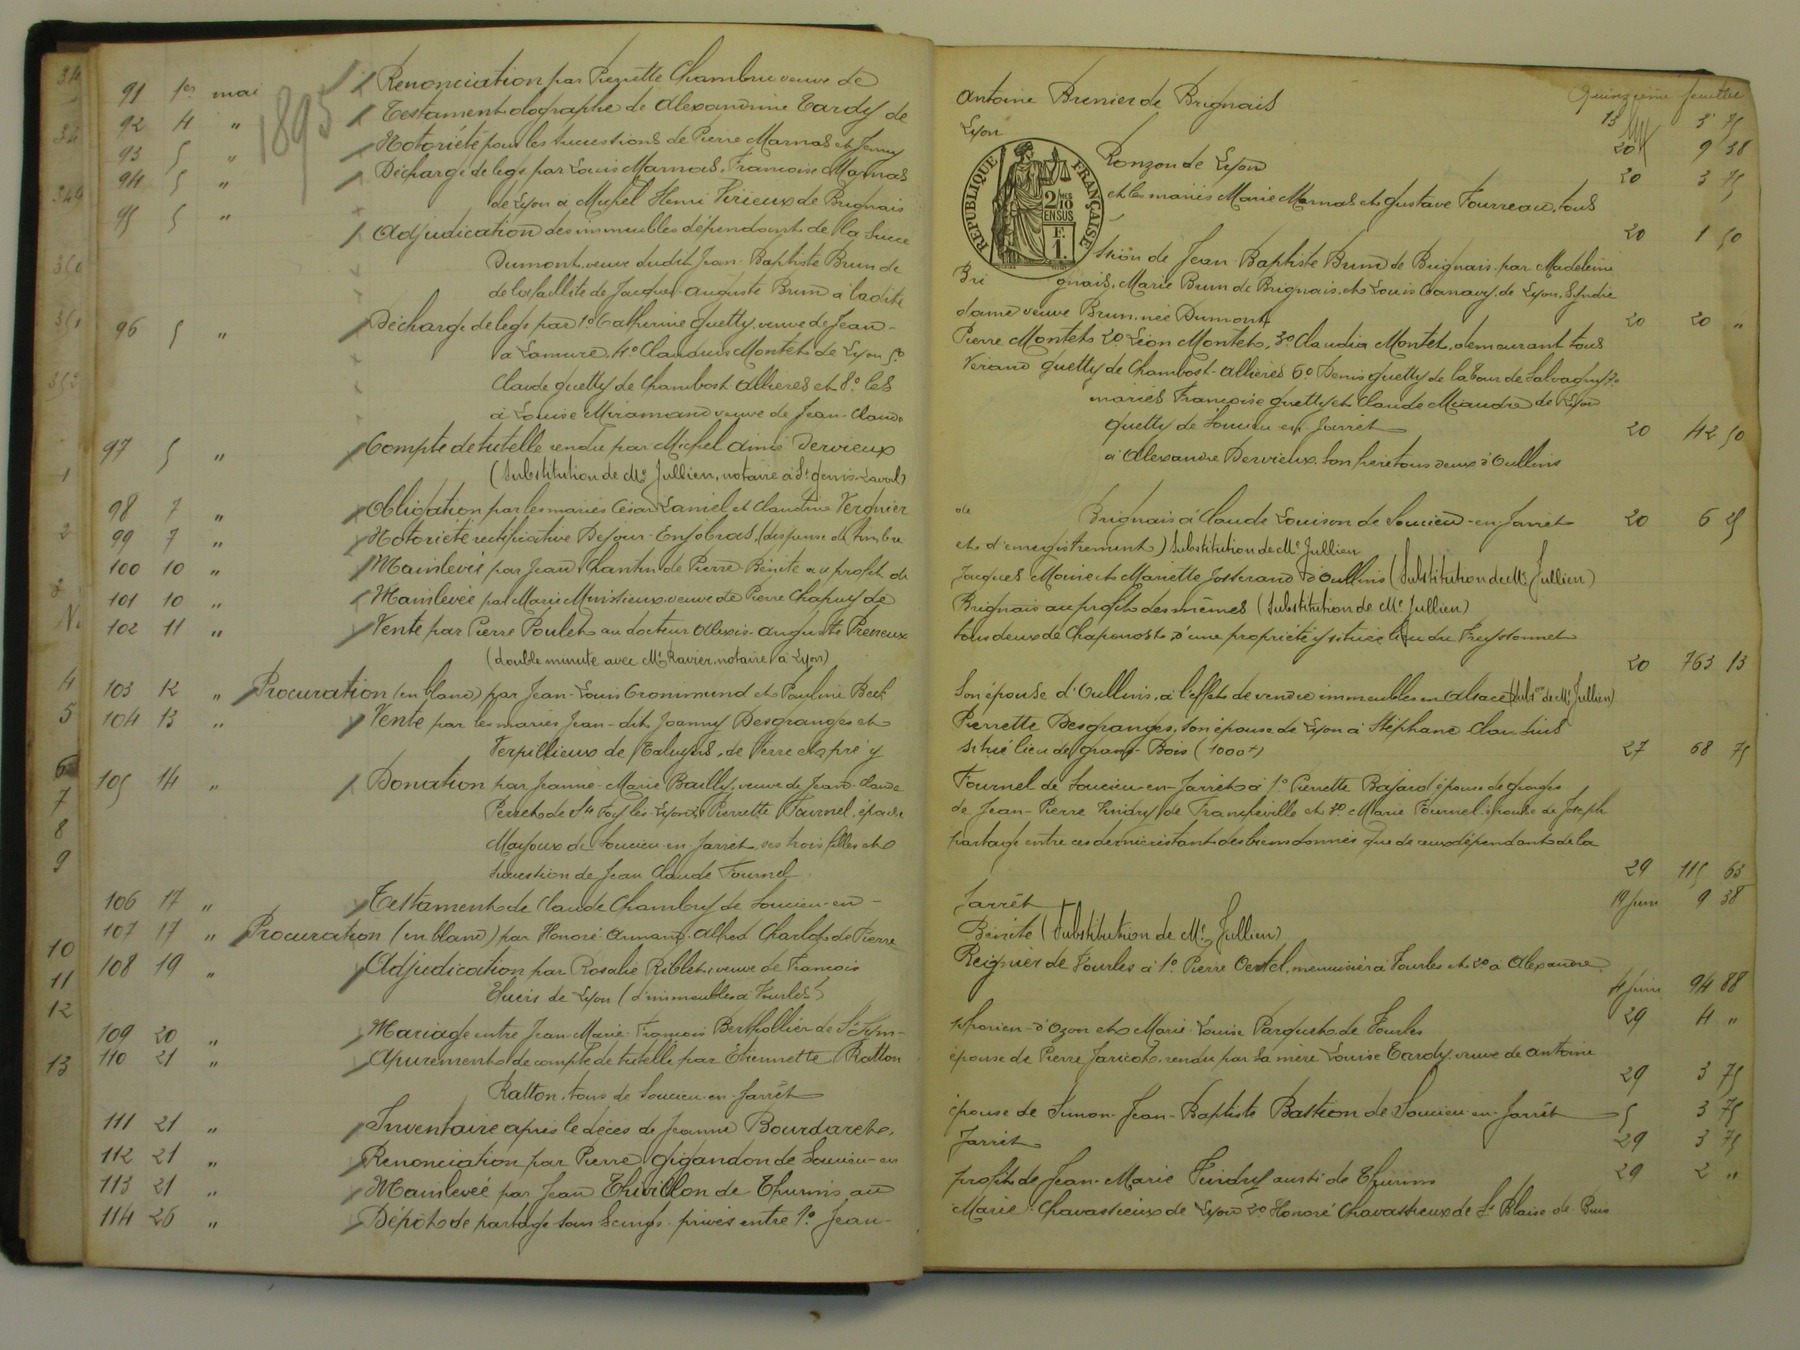 91 1er mai Renonciation par Pierrette Chambru veuve de
92 4 " Testament olographe de Alexandrine Tardy de
93 5 " Notoriété pour les successions de Pierre Marnas et Jenny
94 5 " Décharge de legs par Louis Marnas, Francoise Marnas
de Lyon à Michel Henri Virieux de Brignais
95 5 " Adjudication des immeubles dépendant de la Succe
Dumont, veuve dudit Jean-Baptiste Brun de
de la faillite de Jacques-Auguste Brun à ladite
96 5 " Décharge de legs par 1o Catherine Guetty, veuve de Jean-
à Lamure, 4o Claudius Montet de Lyon 5o
Claude Guetty de Chambost Allières et 8o les
à Louise Miramand veuve de Jean-Claude
97 5 " Compte de tutelle rendu par Michel Aimé Dervieux
(Substitution de Me Jullien, notaire à St genis-Laval)
98 7 " Obligation par les mariés César Laniel et Claudine Vergnier
99 7 " Notoriété rectificative (dispense de timbre
100 10 " Mainlevée par Jean Chantin de Pierre Bénite au profit de
101 10 " Mainlevée par Marie veuve de Pierre Chapuy de
102 11 " Vente par Pierre Poulet au docteur Alexis-Auguste
(double minute avec Me Ravier, notaire à Lyon)
103 12 " Procuration (en blanc) par Jean-Louis Gronimund et Pauline Beck
104 13 " Vente par les mariés Jean-dit Joanny Desgranges et
Verpillieux de Taluyers, de terre et pré y
105 14 " Donation par Jeanne-Marie Bailly, veuve de Jean-Claude
Perret de Ste Foy-les-Lyon, 2o Pierrette Fournel, épouse
Mayoux de Soucieu-en-Jarrêt ses trois filles et
succession de Jean Claude Fournel.
106 17 " Testament de Claude Chambry de Soucieu-en-
107 17 " Procuration (en blanc) par Honoré-Armand-Alfred Charlop de Pierre
108 19 " Adjudication par Rosalie Riblet, veuve de Francois
de Lyon (d'immeubles à Vourles)
109 20 " Mariage entre Jean-Marie-François Berthollier de St Sym-
110 21 " Apurement de compte de tutelle par Etiennette Ratton
Ratton, tous de Soucieu-en-Jarrêt
111 21 " Inventaire après le décès de Jeanne Bourdaret,
112 21 " Renonciation par Pierre Gigandon de Soucieu-en
113 21 " Mainlevée par Jean Thivillon de Thurins au
114 26 " Dépôt de partage sous seings-privés entre 1o Jean-
1895
349
350
351
352
1
2
3
4
5
6
7
8
9
10
11
12
13
Quinzième feuillet
Antoine Brenier de Brignais 13 3 75
Lyon 20 9 38
Ronzon de Lyon 20 3 75
et les mariés Marie Marnas et Gustave Fourreau, tous
20 1 50
RÉPUBLIQUE FRANÇAISE
2/10 EN SUS
F. 1.
ssion de Jean-Baptiste Brun de Brignais par Madeleine
Brignais, Marie Brun de Brignais, et Louis Canavy de Lyon, Syndic
dame veuve Brun, née Dumont 20 20 "
Pierre Montet, 2o Léon Montet, 3o Claudia Montet, demeurant tous
Vérand Guetty de Chambost-Allières 6o Denis Guetty de la Tour de Salvagny 7o
mariés Francoise Guetty et Claude Miaudre de Lyon
Guetty de Soucieu-en-Jarrêt 20 42 50
à Alexandre Dervieux son frère tous deux d'Oullins
de Brignais à Claude Louison de Soucieu-en-Jarrêt 20 6 25
et d'enregistrement) Substitution de Me Jullien
Jacques Moine et Mariette Josserand d'Oullins (Substitution de Me Jullien)
Brignais au profit des mêmes (Substitution de Me Jullien)
tous deux de Chaponost, d'une propriété y située lieu du
20 763 13
Son épouse d'Oullins, à l'effet de vendre immeubles en Alsace (Subs on de Me Jullien)
Pierrette Desgranges, son épouse de Lyon à Stéphane Claudius
situé lieu de Grand-Bois (1000 f) 27 68 75
Fournel de Soucieu-en-Jarrêt à 1o Pierrette Bajard épouse de Georges
de Jean-Pierre Vindry de Francheville et 3o Marie Fournel épouse de Joseph
partage entre ces dernières tant des biens donnés que de ceux dépendant de la
29 115 63
Jarrêt 19 juin 9 38
Bénite (Substitution de Me Jullien)
Reignier de Vourles à 1o Pierre Oertel, menuisier à Vourles et 2o à Alexandre
4 juin 94 88
phorien-d'Ozon et Marie-Louise Parquet de Vourles 29 4 "
épouse de Pierre Jaricot, rendu par sa mère Louise Tardy, veuve de Antoine
29 3 75
épouse de Simon-Jean-Baptiste Bastion de Soucieu-en-Jarrêt 5 3 75
Jarrêt 29 3 75
profit de Jean-Marie Vindry aussi de Thurins 29 2 "
Marie Chavassieux de Lyon 2o Honoré Chavassieux de St Blaise de Buis